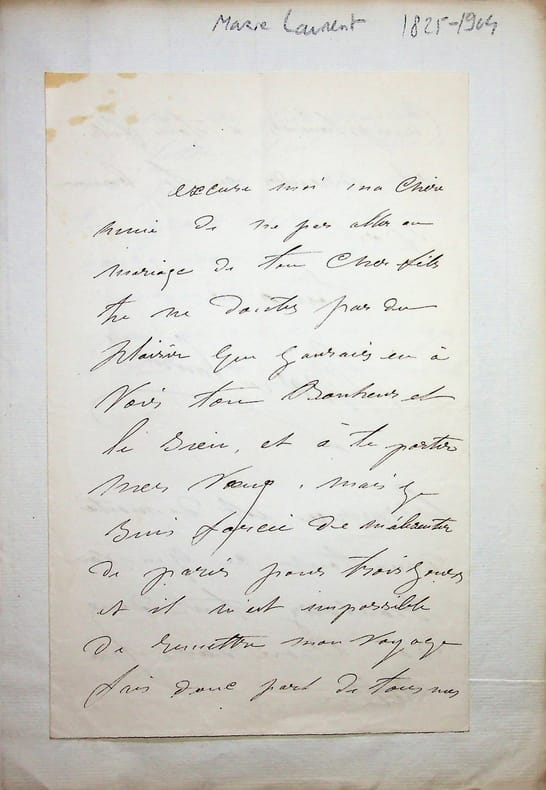 Marie Laurent 1825-1904
excuse moi ma chère
amie de ne pas aller au
mariage de ton cher fils
tu ne doutes pas du
plaisir que j'aurais eu à
voir ton Bonheur et
le sien, et à te porter
mes vœux, mais je
suis forcée de m'absenter
de paris pour trois jours
et il m'est impossible
de remettre mon voyage
fais donc part de tous mes